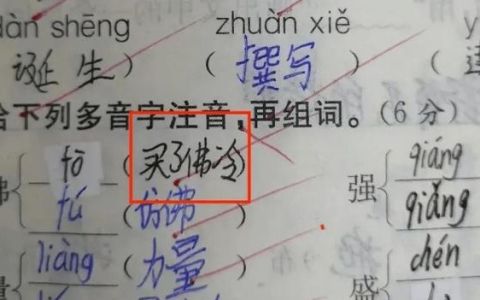 dàn shēng zhuàn xiě y
诞生） （撰写）
给下列多音字注音，再组词。（6分）
佛 fō （买了佛冷） 强 qiáng
fú （仿佛） qiǎng
量 liàng （力量 盛 chén